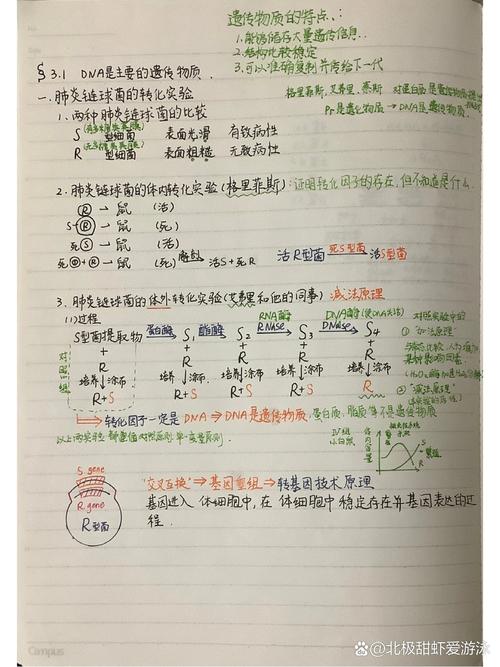 遗传物质的特点：
1.能够储存大量遗传信息.
2.结构比较稳定
3.可以准确复制并传给下一代
§3.1 DNA是主要的遗传物质.
格里菲斯, 艾弗里, 赫斯
Pr是遗传物质→DNA是遗传物质.
一.肺炎链球菌的转化实验
1.两种肺炎链球菌的比较
S 型细菌 表面光滑 有致病性
R 型细菌 表面粗糙 无致病性
2.肺炎链球菌的体内转化实验(格里菲斯):证明转化因子的存在,但不知道是什么.
R → 鼠 (活)
S → 鼠 (死)
死S → 鼠 (活)
死S + R → 鼠 (死) 活S + 死R
活R型菌 死S型菌 活S型菌
3.肺炎链球菌的体外转化实验(艾弗里和他的同事) 减法原理
(1)过程
RNA酶 DNA酶
S型菌提取物 蛋白酶 S1 酯酶 S2 RNase S3 DNase S4
+ + + + +
R R R R R
培养↓涂布 培养↓涂布 培养↓涂布 培养↓涂布 培养↓涂布
R+S R+S R+S R+S R
对照组
①"加法原理"
②"减法原理"
转化因子一定是DNA→DNA是遗传物质,蛋白质、脂质等不是遗传物质
S gene
R gene
R型菌
"交叉互换"→基因重组→转基因技术原理
基因进入体细胞中,在体细胞中稳定存在并基因表达的过
程.
Campus
@北极甜虾爱游泳